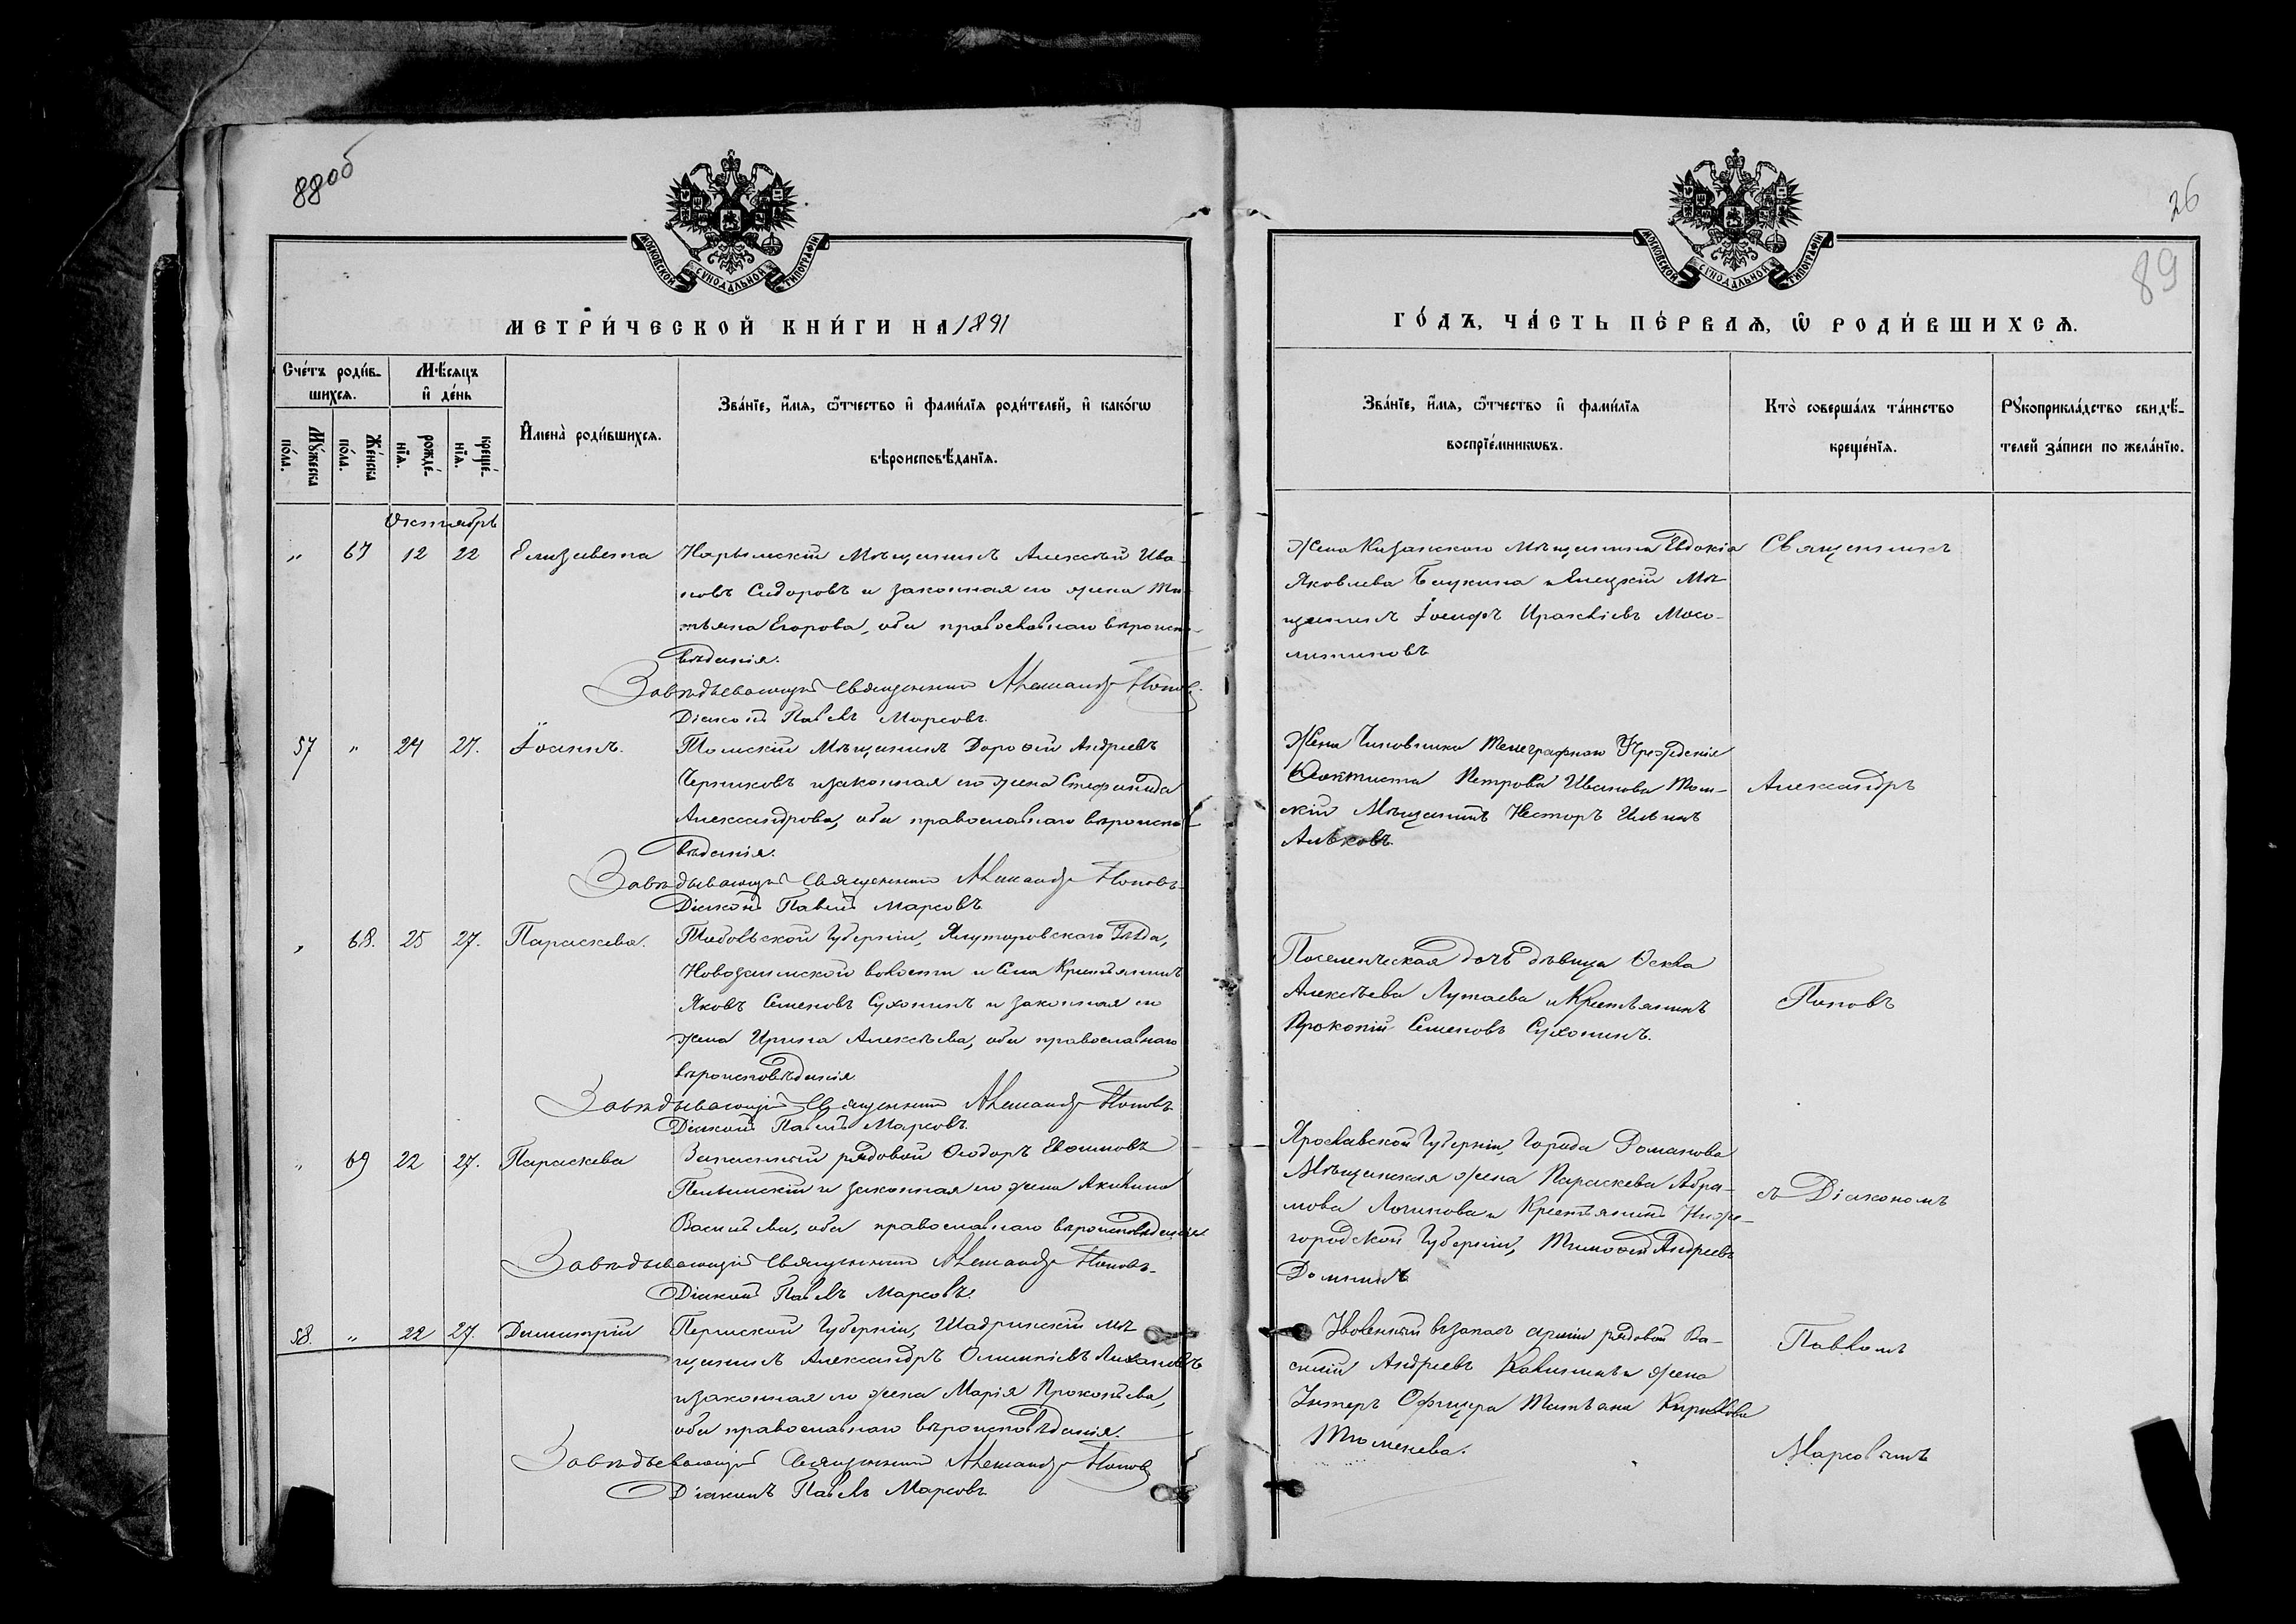 88об
МОСКОВСКОЙ СѴНОДАЛЬНОЙ ТИПОГРАФІИ
МЕТРИ́ЧЕСКОЙ КНИ́ГИ НА 1891
Сче́тъ роди́в-
шихсѧ.
Мѣ́сѧцъ
и҆ де́нь
Мꙋ́жеска по́ла.
Же́нска по́ла.
рожде́-нїѧ.
креще́-нїѧ.
И҆мена̀ роди́вшихсѧ.
Зва́нїе, и҆́мѧ, ѻ҆́тчество и҆ фами́лїѧ роди́телей, и҆ како́гѡ
вѣроисповѣ́данїѧ.
Октябрь
" 67 12 22 Елизавета Нарымскій Мѣщанинъ Алексѣй Ива-
новъ Сидоровъ и законная его жена Та-
тьяна Егорова, оба православнаго вѣроиспо-
вѣданія.
Завѣдывающій Священникъ Александръ Поповъ
Діаконъ Павелъ Марсовъ.
57 " 24 27. Іоаннъ. Томскій Мѣщанинъ Дороѳей Андреевъ
Черниковъ и законная его жена Стефанида
Александрова, оба православнаго вѣроиспо-
вѣданія.
Завѣдывающій Священникъ Александръ Поповъ.
Діаконъ Павелъ Марсовъ
" 68. 25 27. Параскева. Тобольской Губерніи, Ялуторовскаго Уѣзда,
Новозаимской волости и Села Крестьянинъ
Яковъ Семеновъ Сухонинъ и законная его
жена Ирина Алексѣева, оба православнаго
вѣроисповѣданія
Завѣдывающій Священникъ Александръ Поповъ
Діаконъ Павелъ Марсовъ
" 69 22 27. Параскева Запасный рядовой Ѳеодоръ Евѳимовъ
Пелымскій и законная его жена Акилина
Васильева, оба православнаго вѣроисповѣданія
Завѣдывающій Священникъ Александръ Поповъ.
Діаконъ Павелъ Марсовъ.
58. " 22 27. Димитрій Пермской Губерніи, Шадринскій мѣ
щанинъ Александръ Олимпіевъ Лихановъ
и законная его жена Марія Прокопьева,
оба православнаго вѣроисповѣданія.
Завѣдывающій Священникъ Александръ Поповъ
Діаконъ Павелъ Марсовъ
26
89
МОСКОВСКОЙ СѴНОДАЛЬНОЙ ТИПОГРАФІИ
ГО́ДЪ, ЧА́СТЬ ПЕ́РВАѦ, Ѡ҆ РОДИ́ВШИХСѦ.
Зва́нїе, и҆́мѧ, ѻ҆́тчество и҆ фами́лїѧ
воспрїе́мникѡвъ.
Кто̀ соверша́лъ та́инство
креще́нїѧ.
Рꙋкоприкла́дство свидѣ́-
телей за́писи по жела́нїю.
Жена Казанскаго Мѣщанина Евдокія
Яковлева и Елецкій Мѣ
щанинъ Іосифъ Иракліевъ
Священникъ
Жена Чиновника Телеграфнаго Учрежденія
Ѳеоктиста Петрова Иванова Том-
скій Мѣщанинъ Несторъ Ильинъ
Александръ
Поселенческая дочь дѣвица
Алексѣева Лутаева и Крестьянинъ
Прокопій Семеновъ Сухонинъ.
Поповъ
Ярославской Губерніи, Города Романова
Мѣщанская жена Параскева Абра-
мова Логинова и Крестьянинъ Ниже-
городской Губерніи, Тимоѳей Андреевъ
съ Діакономъ
Уволенный въ запасъ арміи рядовой Ва-
силій Андреевъ Калининъ и жена
Унтеръ Офицера Татьяна Кирилова
Тюменева.
Павломъ
Марсовымъ